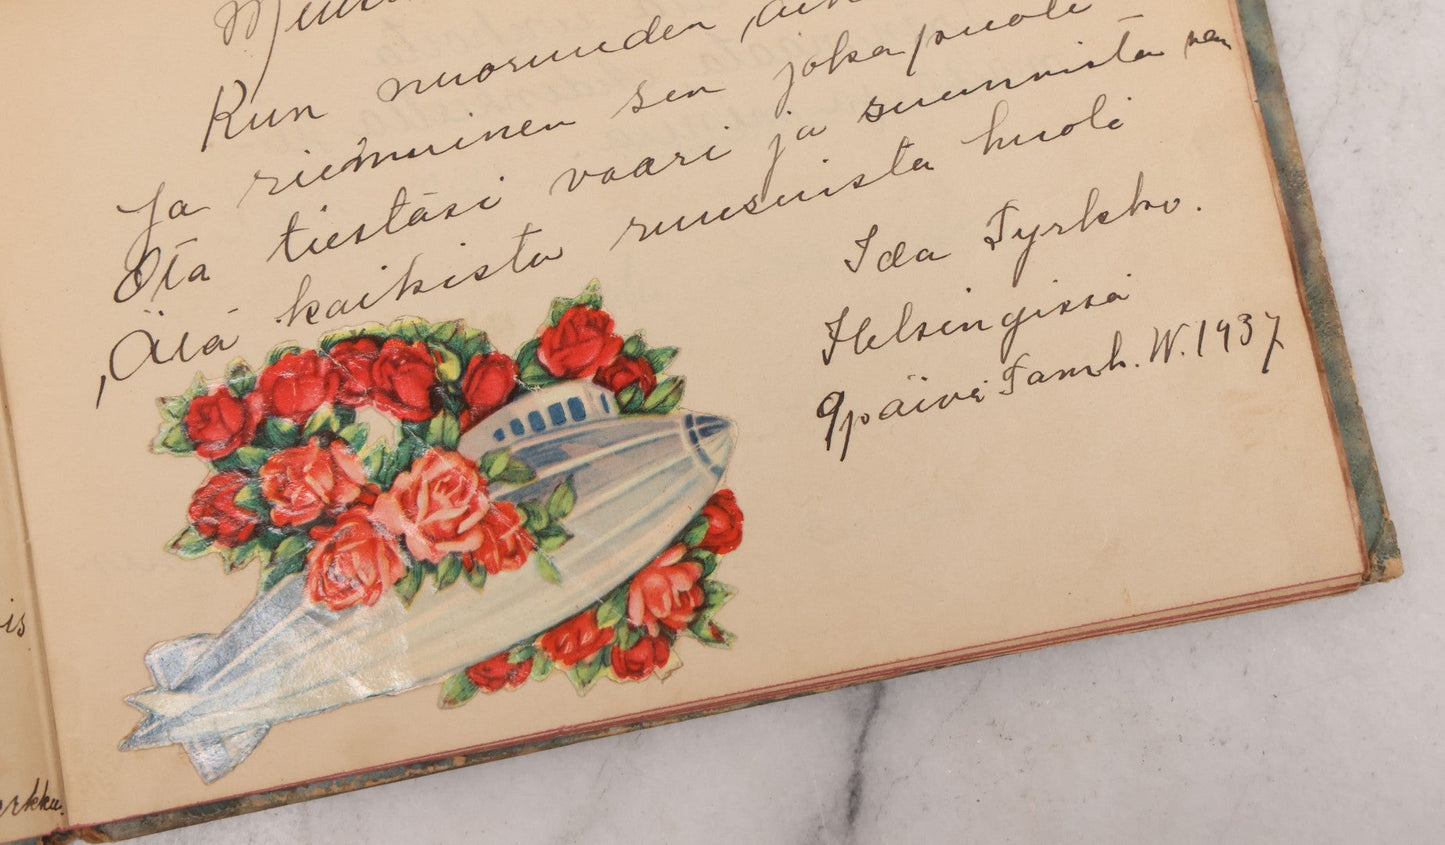 Kun nuoruuden
Ja riemuinen sen joka puoli
Ota tiestäsi vaari ja suunnista
Älä kaikista ruusuista huoli
Ida Tyrkkö.
Helsingissä
9 päivä Tamk. W. 1937
is
rkkö.